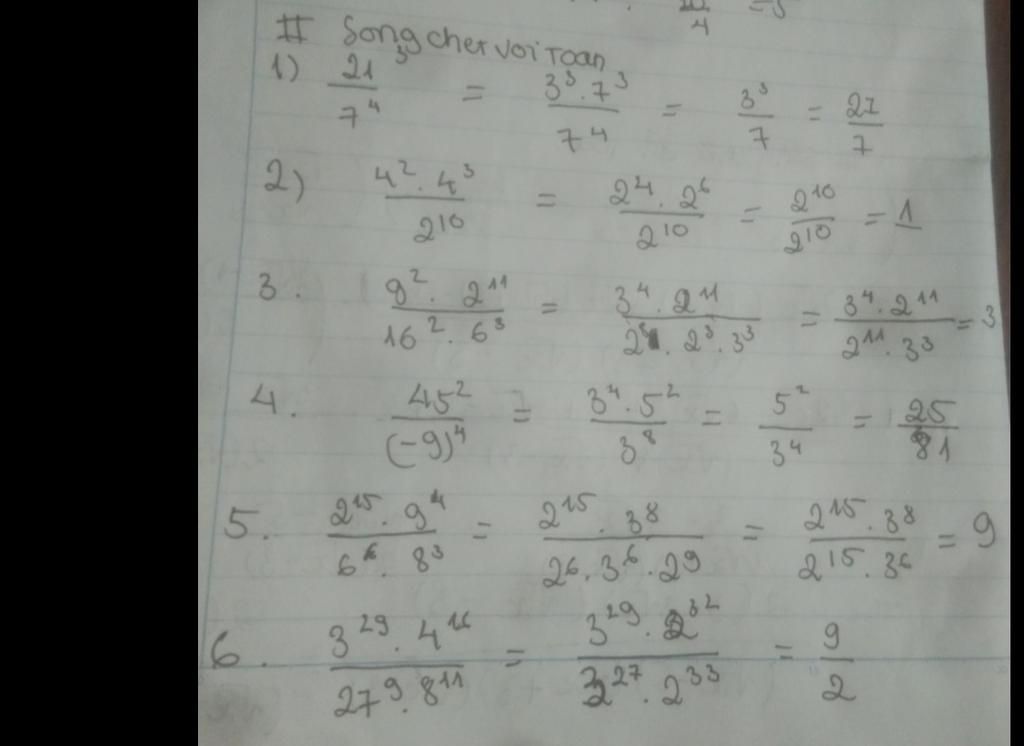 = 5
4
II Song chet voi toan
1) 21³/7⁴ = 3³.7³/7⁴ = 3³/7 = 27/7
2) 4².4³/2¹⁰ = 2⁴.2⁶/2¹⁰ = 2¹⁰/2¹⁰ = 1
3. 9².2¹¹/16².6³ = 3⁴.2¹¹/2⁸.2³.3³ = 3⁴.2¹¹/2¹¹.3³ = 3
4. 45²/(-9)⁴ = 3⁴.5²/3⁸ = 5²/3⁴ = 25/81
5. 2¹⁵.9⁴/6⁶.8³ = 2¹⁵.3⁸/2⁶.3⁶.2⁹ = 2¹⁵.3⁸/2¹⁵.3⁶ = 9
6. 3²⁹.4¹⁶/27⁹.8¹¹ = 3²⁹.2³²/3²⁷.2³³ = 9/2